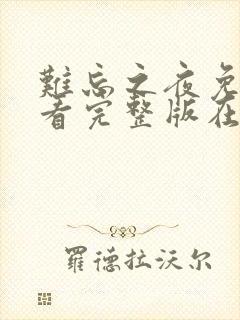 難忘之夜免
看完整版在
羅德拉沃尔